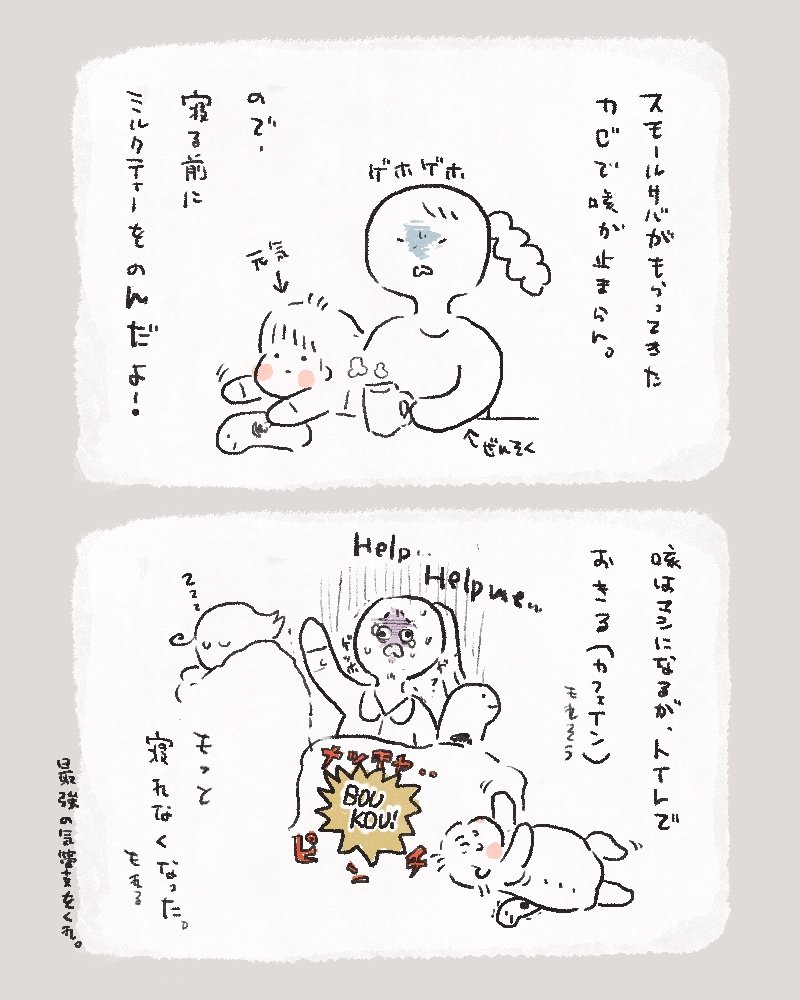 スモールサバがもらってきた
カゼで咳が止まらん。
ゲホゲホ
ので、
寝る前に
ミルクティーをのんだよー。
元気
ぜんそく
咳はマシになるが、トイレで
おきる(カフェイン)
もれそう
Help..
Help me...
ゲホ
zzz
メッチャ..
BOU
KOU!
ピンチ
もっと
寝れなくなった。
もれる
最強の気管支をくれ。